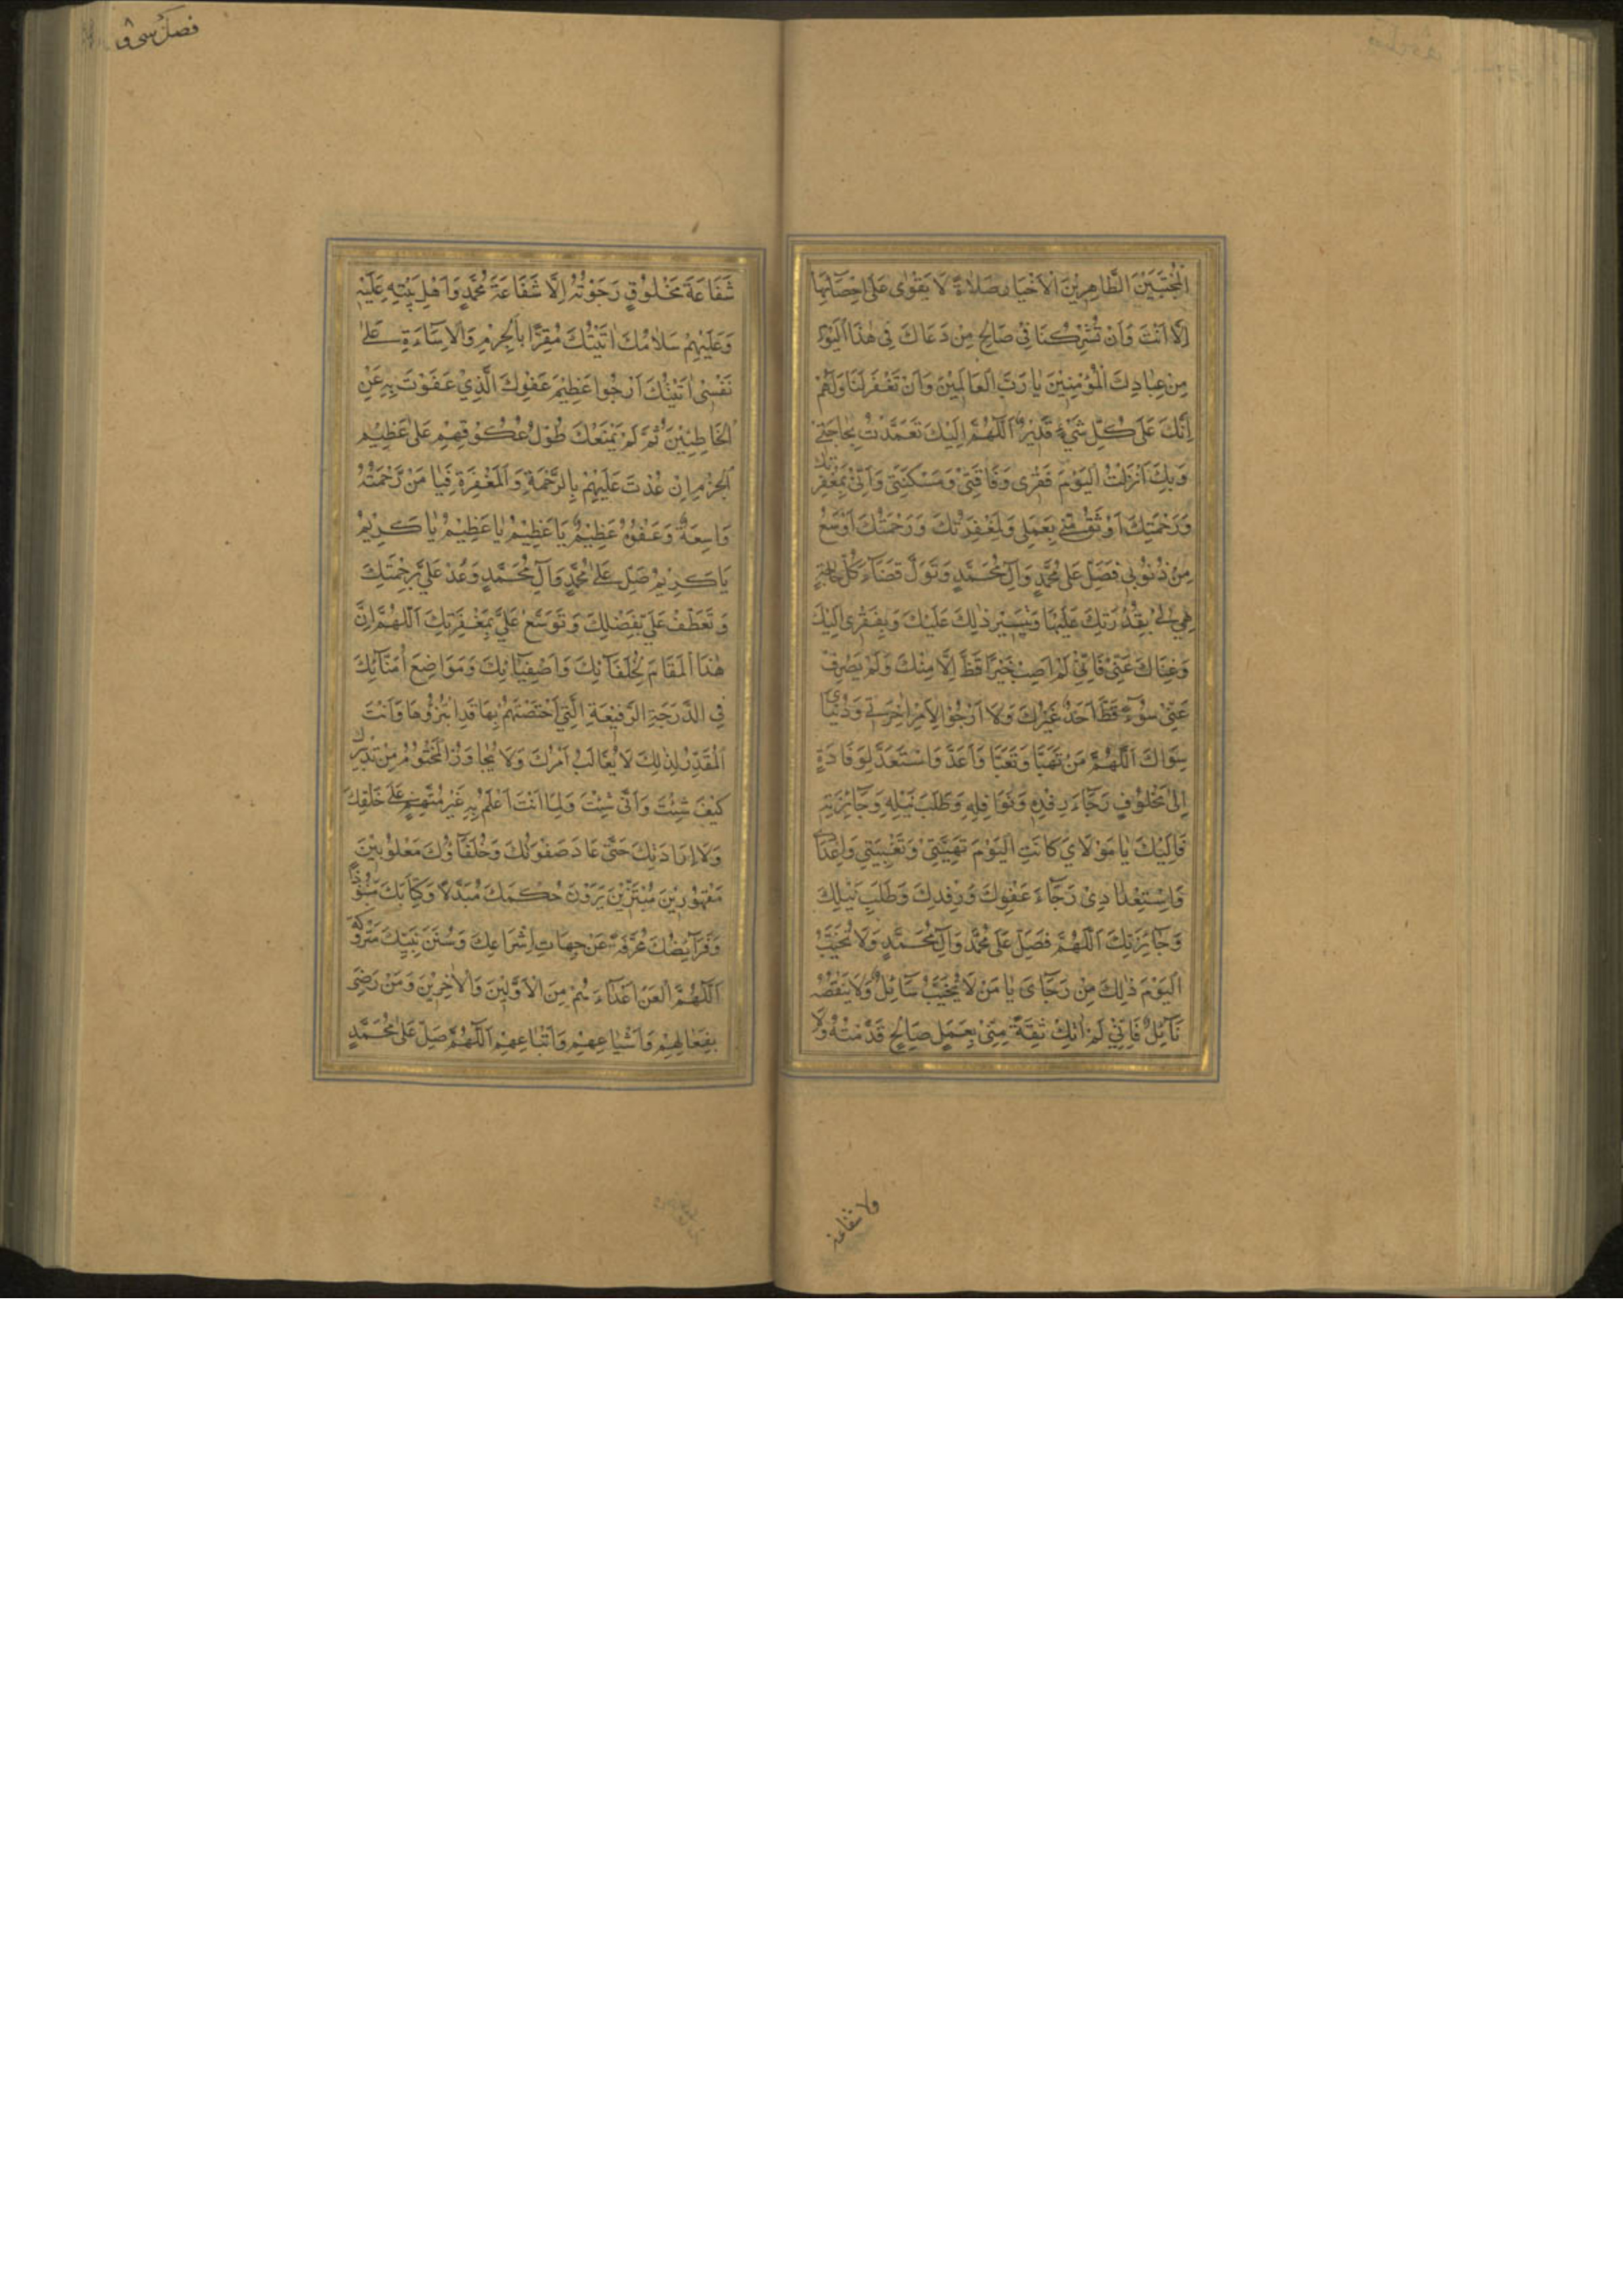 الْمُجْتَبَيْنَ الطَّاهِرِيْنَ الْاَخْيَارِ صَلٰوةً لَا يَقْوٰى عَلٰى اِحْصَآئِهَا
اِلَّا اَنْتَ وَاَنْ تُشْرِكَنَا فِيْ صَالِحِ مَنْ دَعَاكَ فِيْ هٰذَا الْيَوْمِ
مِنْ عِبَادِكَ الْمُؤْمِنِيْنَ يَا رَبَّ الْعَالَمِيْنَ وَاَنْ تَغْفِرَ لَنَا وَلَهُمْ
اِنَّكَ عَلٰى كُلِّ شَيْءٍ قَدِيْرٌ اَللّٰهُمَّ اِلَيْكَ تَعَمَّدْتُ بِحَاجَتِيْ
وَبِكَ اَنْزَلْتُ الْيَوْمَ فَقْرِيْ وَفَاقَتِيْ وَمَسْكَنَتِيْ وَاِنِّيْ بِمَغْفِرَتِكَ
وَرَحْمَتِكَ اَوْثَقُ مِنِّيْ بِعَمَلِيْ وَلَمَغْفِرَتُكَ وَرَحْمَتُكَ اَوْسَعُ
مِنْ ذُنُوْبِيْ فَصَلِّ عَلٰى مُحَمَّدٍ وَاٰلِ مُحَمَّدٍ وَتَوَلَّ قَضَآءَ كُلِّ حَاجَةٍ
هِيَ لِيْ بِقُدْرَتِكَ عَلَيْهَا وَتَيْسِيْرِ ذٰلِكَ عَلَيْكَ وَبِفَقْرِيْ اِلَيْكَ
وَغِنَاكَ عَنِّيْ فَاِنِّيْ لَمْ اُصِبْ خَيْرًا قَطُّ اِلَّا مِنْكَ وَلَمْ يَصْرِفْ
عَنِّيْ سُوْٓءًا قَطُّ اَحَدٌ غَيْرُكَ وَلَا اَرْجُوْ لِاَمْرِ اٰخِرَتِيْ وَدُنْيَايَ
سِوَاكَ اَللّٰهُمَّ مَنْ تَهَيَّأَ وَتَعَبَّأَ وَاَعَدَّ وَاسْتَعَدَّ لِوِفَادَةٍ
اِلٰى مَخْلُوْقٍ رَجَآءَ رِفْدِهٖ وَنَوَافِلِهِ وَطَلَبَ نَيْلِهِ وَجَآئِزَتِهِ
فَاِلَيْكَ يَا مَوْلَايَ كَانَتِ الْيَوْمَ تَهْيِئَتِيْ وَتَعْبِيَتِيْ وَاِعْدَادِيْ
وَاسْتِعْدَادِيْ رَجَآءَ عَفْوِكَ وَرِفْدِكَ وَطَلَبِ نَيْلِكَ
وَجَآئِزَتِكَ اَللّٰهُمَّ فَصَلِّ عَلٰى مُحَمَّدٍ وَاٰلِ مُحَمَّدٍ وَلَا تُخَيِّبْ
الْيَوْمَ ذٰلِكَ مِنْ رَجَآئِيْ يَا مَنْ لَا يُخَيِّبُ سَآئِلٌ وَلَا يَنْقُصُهُ
نَآئِلٌ فَاِنِّيْ لَمْ اٰتِكَ ثِقَةً مِنِّيْ بِعَمَلٍ صَالِحٍ قَدَّمْتُهُ وَلَا
ولا شفاعة
فصل
شَفَاعَةَ مَخْلُوْقٍ رَجَوْتُهُ اِلَّا شَفَاعَةَ مُحَمَّدٍ وَاَهْلِ بَيْتِهِ عَلَيْهِ
وَعَلَيْهِمْ سَلَامُكَ اَتَيْتُكَ مُقِرًّا بِالْجُرْمِ وَالْاِسَآءَةِ عَلٰى
نَفْسِيْ اَتَيْتُكَ اَرْجُوْا عَظِيْمَ عَفْوِكَ الَّذِيْ عَفَوْتَ بِهِ عَنِ
الْخَاطِئِيْنَ ثُمَّ لَمْ يَمْنَعْكَ طُوْلُ عُكُوْفِهِمْ عَلٰى عَظِيْمِ
الْجُرْمِ اِنْ عُدْتَ عَلَيْهِمْ بِالرَّحْمَةِ وَالْمَغْفِرَةِ فَيَا مَنْ رَحْمَتُهُ
وَاسِعَةٌ وَعَفْوُهُ عَظِيْمٌ يَا عَظِيْمُ يَا عَظِيْمُ يَا كَرِيْمُ
يَا كَرِيْمُ صَلِّ عَلٰى مُحَمَّدٍ وَاٰلِ مُحَمَّدٍ وَعُدْ عَلَيَّ بِرَحْمَتِكَ
وَتَعَطَّفْ عَلَيَّ بِفَضْلِكَ وَتَوَسَّعْ عَلَيَّ بِمَغْفِرَتِكَ اَللّٰهُمَّ اِنَّ
هٰذَا الْمَقَامَ لِخُلَفَآئِكَ وَاَصْفِيَآئِكَ وَمَوَاضِعَ اُمَنَآئِكَ
فِي الدَّرَجَةِ الرَّفِيْعَةِ الَّتِيْ اخْتَصَصْتَهُمْ بِهَا قَدِ ابْتَزُّوْهَا وَاَنْتَ
الْمُقَدِّرُ لِذٰلِكَ لَا يُغَالَبُ اَمْرُكَ وَلَا يُجَاوَزُ الْمَحْتُوْمُ مِنْ تَدْبِيْرِكَ
كَيْفَ شِئْتَ وَاَنّٰى شِئْتَ وَلِمَا اَنْتَ اَعْلَمُ بِهِ غَيْرُ مُتَّهَمٍ عَلٰى خَلْقِكَ
وَلَا لِاِرَادَتِكَ حَتّٰى عَادَ صَفْوَتُكَ وَخُلَفَآؤُكَ مَغْلُوْبِيْنَ
مَقْهُوْرِيْنَ مُبْتَزِّيْنَ يَرَوْنَ حُكْمَكَ مُبَدَّلًا وَكِتَابَكَ مَنْبُوْذًا
وَفَرَآئِضَكَ مُحَرَّفَةً عَنْ جِهَاتِ اِشْرَاعِكَ وَسُنَنَ نَبِيِّكَ مَتْرُوْكَةً
اَللّٰهُمَّ الْعَنْ اَعْدَآءَهُمْ مِنَ الْاَوَّلِيْنَ وَالْاٰخِرِيْنَ وَمَنْ رَضِيَ
بِفِعَالِهِمْ وَاَشْيَاعِهِمْ وَاَتْبَاعِهِمْ اَللّٰهُمَّ صَلِّ عَلٰى مُحَمَّدٍ